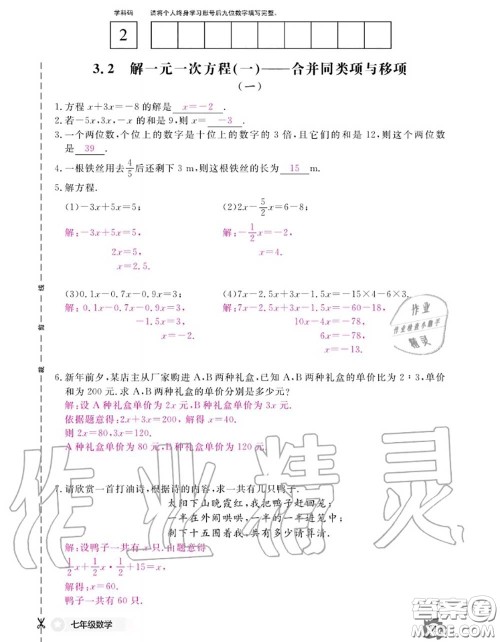 学科码 请将个人终身学习形号后九位数字填写完整。
2
3.2 解一元一次方程(一)——合并同类项与移项
(一)
1.方程x+3x=-8的解是 x=-2 .
2.若-5x,3x,-x的和是9,则x= -3 .
3.一个两位数,个位上的数字是十位上的数字的3倍,且它们的和是12,则这个两位数
是 39 .
4.一根铁丝用去4/5后还剩下3 m,则这根铁丝的长为 15 m.
5.解方程.
(1)-3x+5x=5; (2)2x-5/2x=6-8;
解:-3x+5x=5, 解:-1/2x=-2,
2x=5, x=4.
x=2.5.
(3)0.1x-0.7x-0.9x=3; (4)7x-2.5x+3x-1.5x=-15×4-6×3.
解:0.1x-0.7x-0.9x=3, 解:7x-2.5x+3x-1.5x=-60-18,
-1.5x=3, 10x-4x=-78,
x=-2. 6x=-78,
x=-13.
6.新年前夕,某店主从厂家购进A,B两种礼盒,已知A,B两种礼盒的单价比为2∶3,单价
和为200元.求A,B两种礼盒的单价分别是多少元?
解:设A种礼盒单价为2x元,B种礼盒单价为3x元.
依据题意得:2x+3x=200,解得x=40.
则2x=80,3x=120.
A种礼盒单价为80元,B种礼盒单价为120元.
7.请欣赏一首打油诗,根据诗的内容,求一共有几只鸭子.
太阳下山晚霞红,我把鸭子赶回笼;
一半在外闹哄哄,一半的一半进笼中;
剩下十五围着我,共有多少请算清.
解:设鸭子一共有x只.由题意得
1/2x+1/2x·1/2+15=x,
解得:x=60.
鸭子一共有60只.
七年级数学
作业精灵
作业
作业检查小助手
精灵
答案圈
MXQE.COM